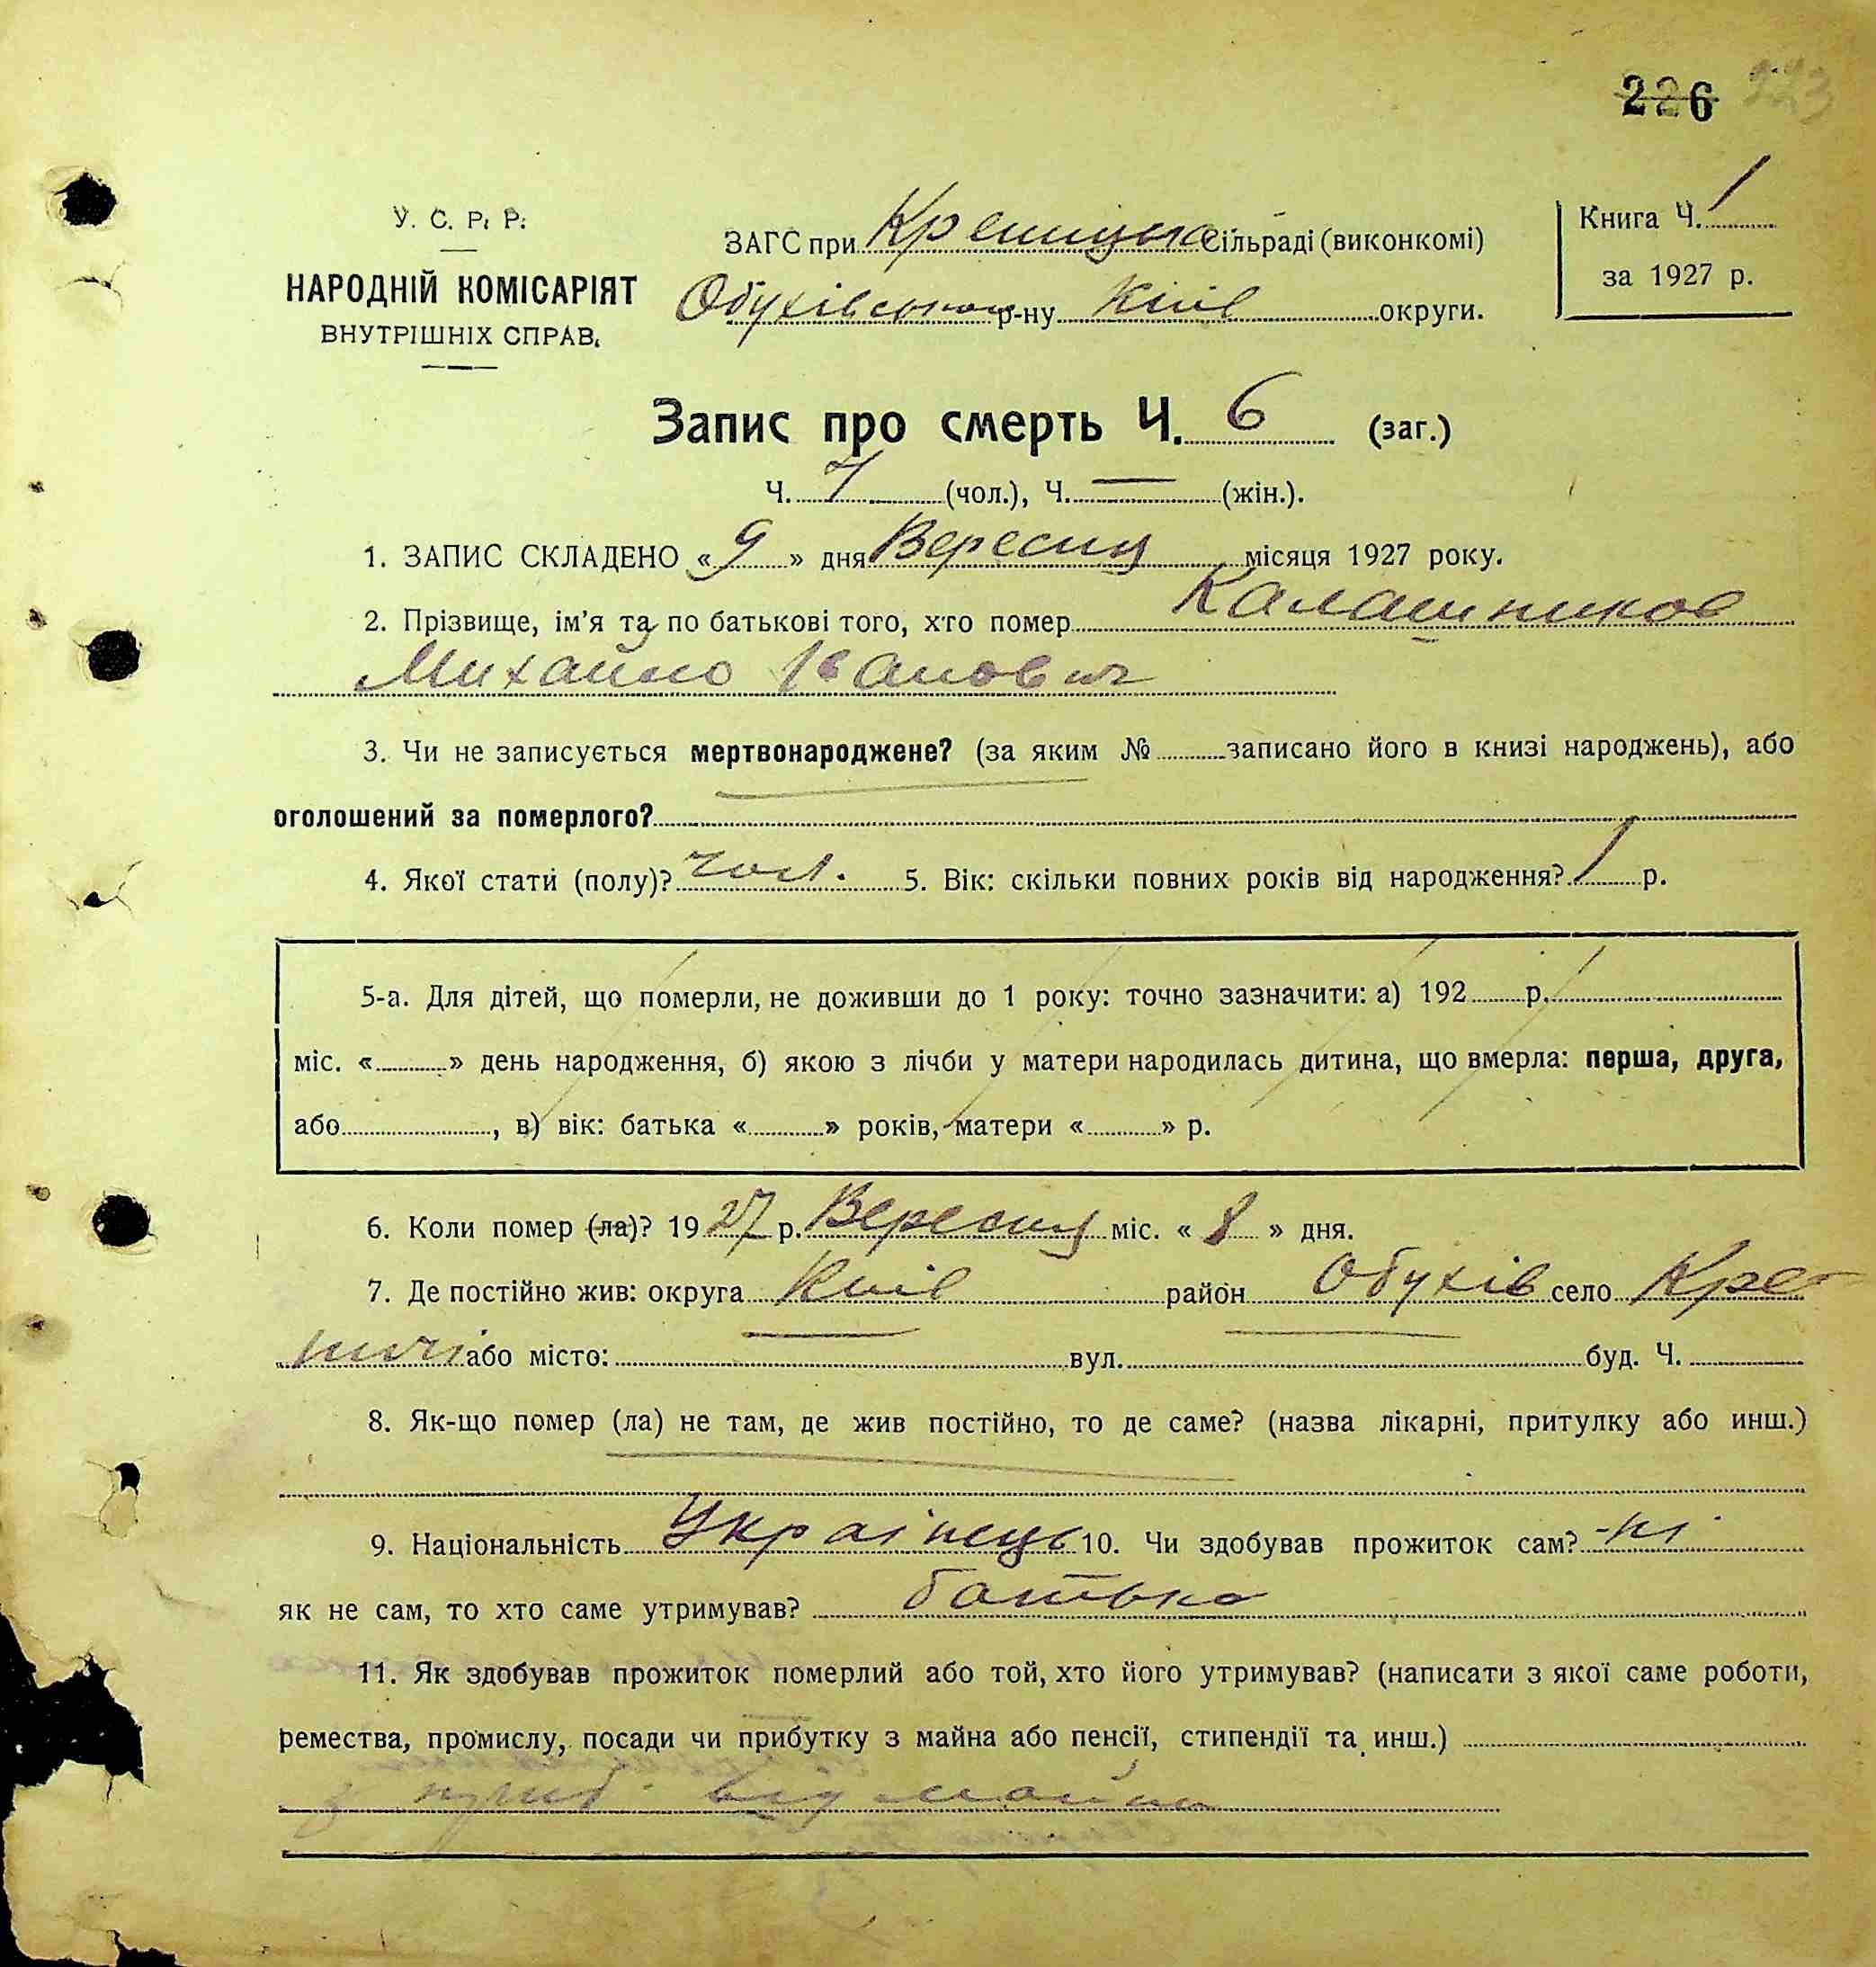 226 223
У. С. Р. Р.
НАРОДНІЙ КОМІСАРІЯТ
ВНУТРІШНІХ СПРАВ.
ЗАГС при Креницька Сільраді (виконкомі)
Обухівського р-ну Київ округи.
Книга Ч. 1
за 1927 р.
Запис про смерть Ч. 6 (заг.)
Ч. 7 (чол.), Ч. — (жін.).
1. ЗАПИС СКЛАДЕНО « 9 » дня Вересня місяця 1927 року.
2. Прізвище, ім'я та по батькові того, хто помер Калашников
Михайло Іванович
3. Чи не записується мертвонароджене? (за яким № записано його в книзі народжень), або
оголошений за померлого?
4. Якої стати (полу)? чол. 5. Вік: скільки повних років від народження? 1 р.
5-а. Для дітей, що померли, не доживши до 1 року: точно зазначити: а) 192 р.
міс. « » день народження, б) якою з лічби у матери народилась дитина, що вмерла: перша, друга,
або , в) вік: батька « » років, матери « » р.
6. Коли помер (ла)? 19 27 р. Вересня міс. « 8 » дня.
7. Де постійно жив: округа Київ район Обухів село Кре-
ничі або місто: вул. буд. Ч.
8. Як-що помер (ла) не там, де жив постійно, то де саме? (назва лікарні, притулку або инш.)
9. Національність Українець 10. Чи здобував прожиток сам? ні
як не сам, то хто саме утримував? батько
11. Як здобував прожиток померлий або той, хто його утримував? (написати з якої саме роботи,
ремества, промислу, посади чи прибутку з майна або пенсії, стипендії та инш.)
з приб. від майна